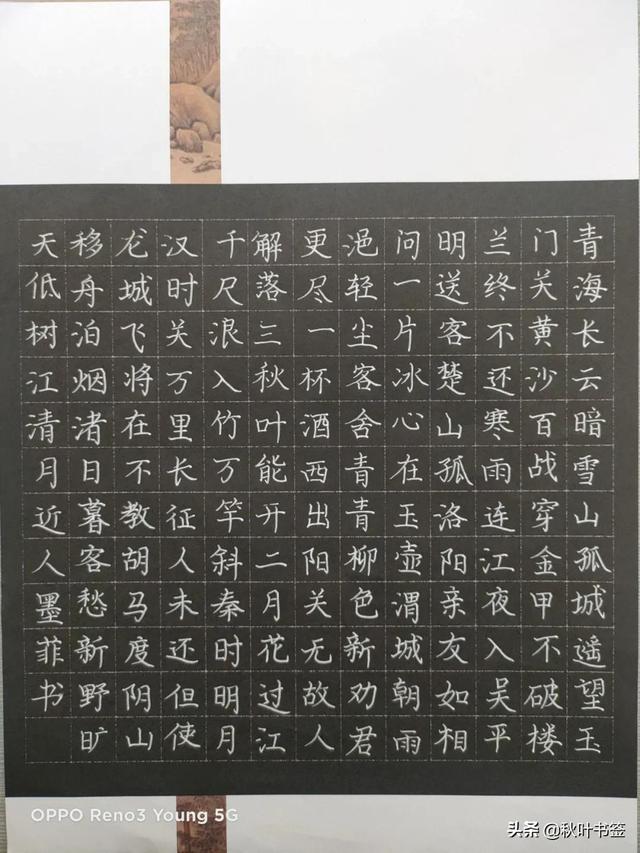 青海长云暗雪山孤城遥望玉
门关黄沙百战穿金甲不破楼
兰终不还寒雨连江夜入吴平
明送客楚山孤洛阳亲友如相
问一片冰心在玉壶渭城朝雨
浥轻尘客舍青青柳色新劝君
更尽一杯酒西出阳关无故人
解落三秋叶能开二月花过江
千尺浪入竹万竿斜秦时明月
汉时关万里长征人未还但使
龙城飞将在不教胡马度阴山
移舟泊烟渚日暮客愁新野旷
天低树江清月近人墨菲书
OPPO Reno3 Young 5G
头条 @秋叶书签